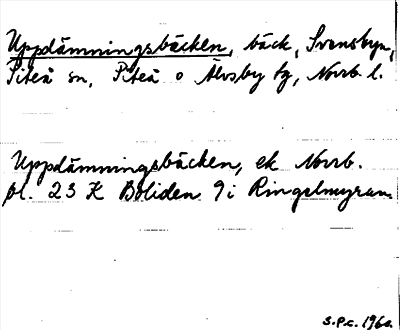 Uppdämningsbäcken, bäck, Svensbyn,
Piteå sn, Piteå o Älvsby tg, Norrb. l.
Uppdämningsbäcken, ek Norrb.
bl. 23 K Boliden 9i Ringelmyran.
S.P.c. 1960.